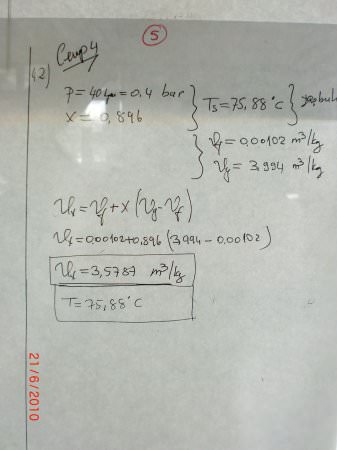 5
42)
P = 40 kPa = 0,4 bar
X = 0,896
Ts = 75,88 °C
vf = 0,00102 m³/kg
vg = 3,994 m³/kg
v1 = vf + x (vg - vf)
v1 = 0,00102 + 0,896 (3,994 - 0,00102)
v1 = 3,5787 m³/kg
T = 75,88 °C
21/6/2010